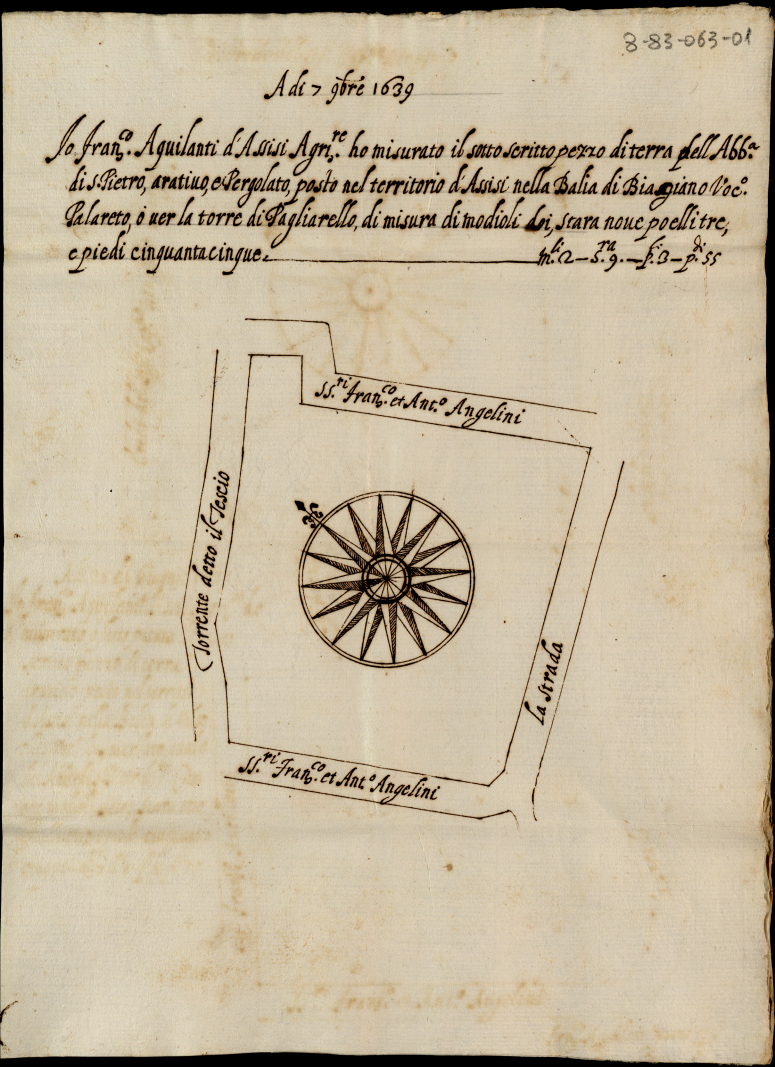 8-83-063-01
A di 7 9bre 1639
Io Fran.co Aquilanti d'Assisi Agri.re ho misurato il sottoscritto pezzo di terra dell'Abb.a
di S. Pietro, arativo, e Pergolato, posto nel territorio d'Assisi nella Balia di Biagiano Voc.o
Palareto, o ver la torre di Pagliarello, di misura di modioli doi, stara nove poelli tre,
e piedi cinquantacinque. m.li 2 – s.ra 9. – p.li 3 – p.di 55
SS.ri Fran.co et Ant.o Angelini
Torrente detto il Tescio
La strada
SS.ri Fran.co et Ant.o Angelini